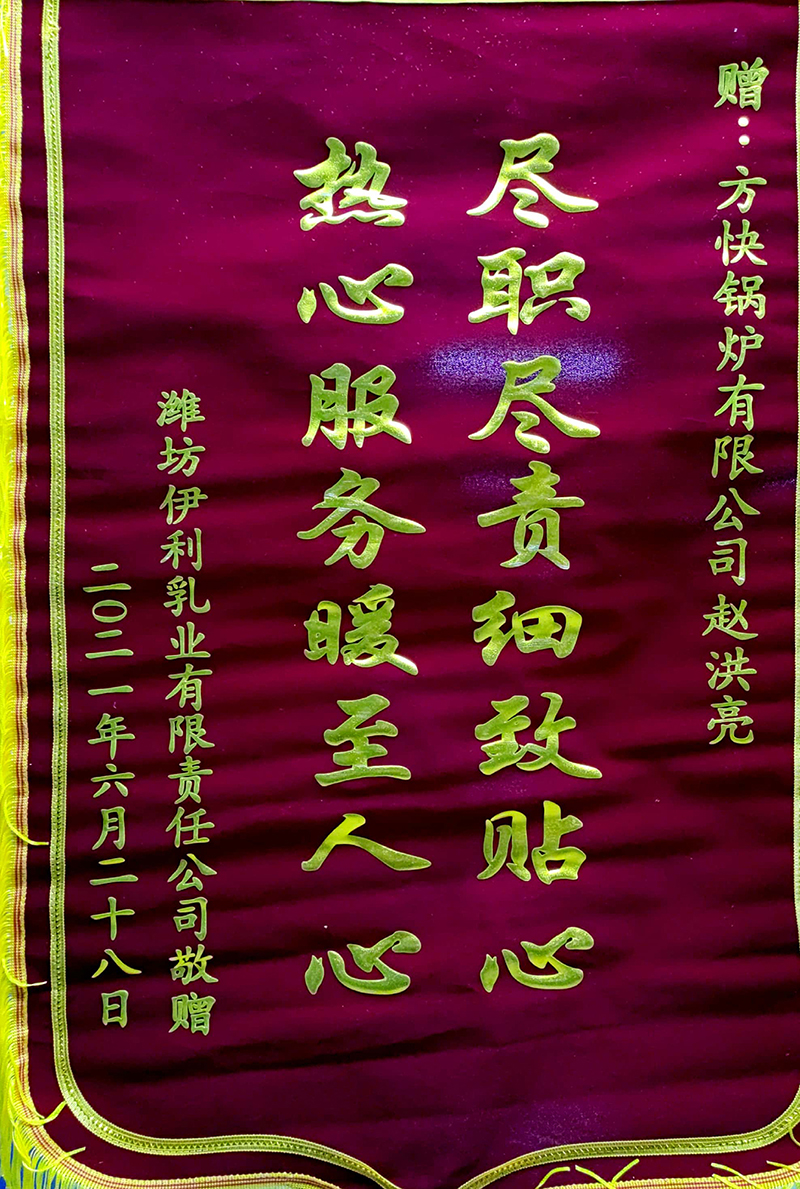 赠：方快锅炉有限公司赵洪亮
尽职尽责细致贴心
热心服务暖至人心
潍坊伊利乳业有限责任公司敬赠
二〇二一年六月二十八日